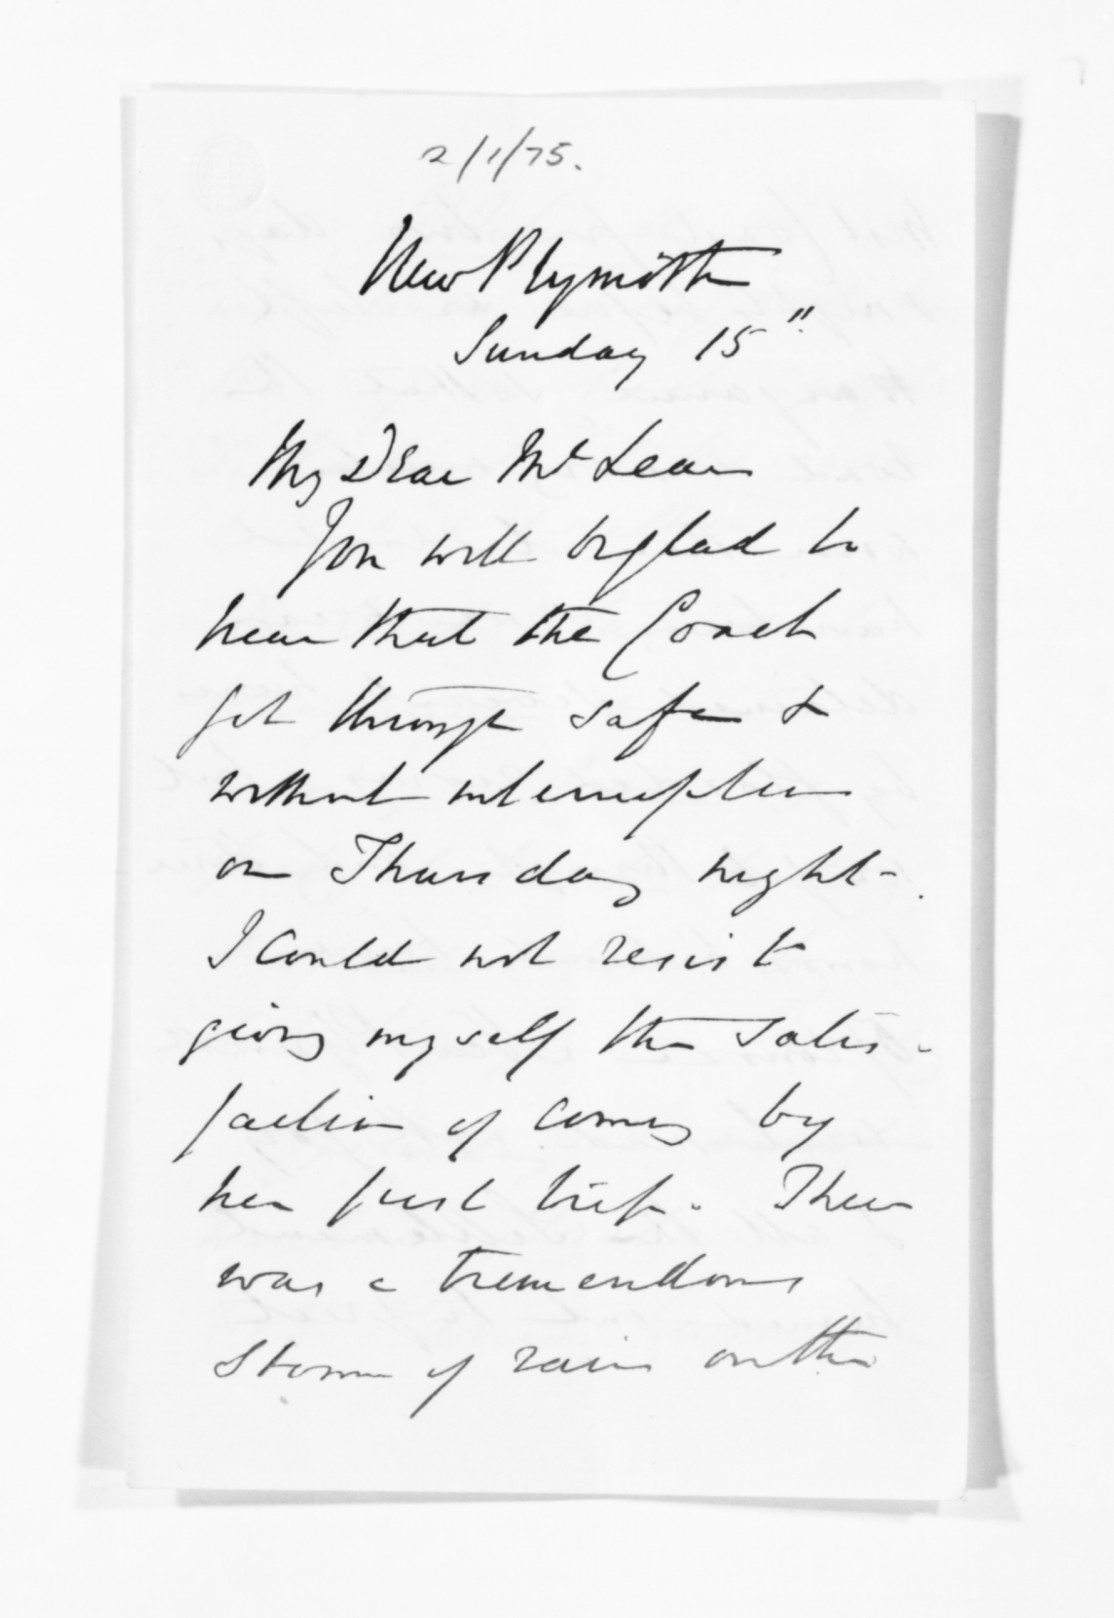 2/1/75.
New Plymouth
Sunday 15"
My Dear McLean
You will be glad to
hear that the Coach
got through safe &
without interruption
on Thursday night -.
I could not resist
giving myself the satis-
faction of coming by
her first trip. There
was a tremendous
storm of rain on the